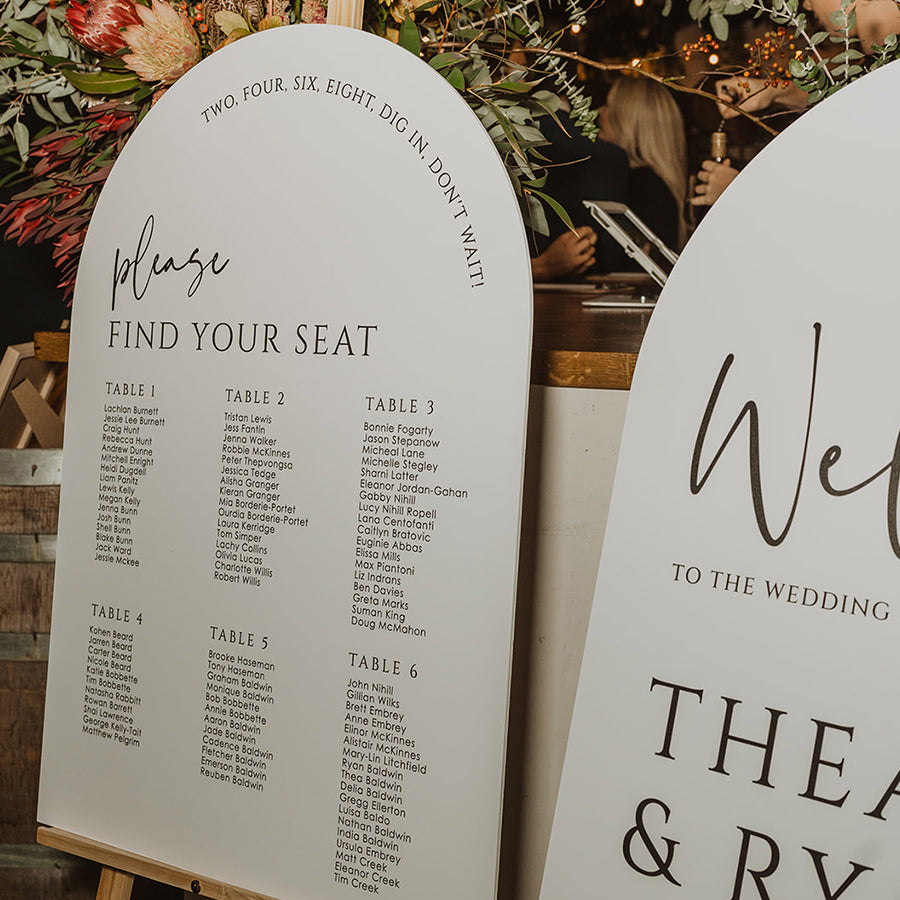 TWO, FOUR, SIX, EIGHT, DIG IN, DON'T WAIT!
please
FIND YOUR SEAT
TABLE 1
Lachlan Burnett
Jessie Lee Burnett
Craig Hunt
Rebecca Hunt
Andrew Dunne
Mitchell Enright
Heidi Dugdell
Liam Panitz
Lewis Kelly
Megan Kelly
Jenna Bunn
Josh Bunn
Shell Bunn
Blake Bunn
Jack Ward
Jessie Mckee
TABLE 2
Tristan Lewis
Jess Fantin
Jenna Walker
Robbie McKinnes
Peter Thepvongsa
Jessica Tedge
Alisha Granger
Kieran Granger
Mia Borderie-Portet
Ourdia Borderie-Portet
Laura Kerridge
Tom Simper
Lachy Collins
Olivia Lucas
Charlotte Willis
Robert Willis
TABLE 3
Bonnie Fogarty
Jason Stepanow
Micheal Lane
Michelle Stegley
Sharni Latter
Eleanor Jordan-Gahan
Gabby Nihill
Lucy Nihill Ropell
Lana Centofanti
Caitlin Bratovic
Euginie Abbas
Elissa Mills
Max Piantoni
Liz Indrans
Ben Davies
Greta Marks
Suman King
Doug McMahon
TABLE 4
Kohen Beard
Jarren Beard
Carter Beard
Nicole Beard
Katie Bobbette
Tim Bobbette
Natasha Rabbitt
Rowan Barrett
Shai Lawrence
George Kelly-Tait
Matthew Pelgrim
TABLE 5
Brooke Haseman
Tony Haseman
Graham Baldwin
Monique Baldwin
Bob Bobbette
Annie Bobbette
Aaron Baldwin
Jade Baldwin
Cadence Baldwin
Fletcher Baldwin
Emerson Baldwin
Reuben Baldwin
TABLE 6
John Nihill
Gillian Wilks
Brett Embrey
Anne Embrey
Elinor McKinnes
Alistair McKinnes
Mary-Lin Litchfield
Ryan Baldwin
Thea Baldwin
Delia Baldwin
Gregg Ellerton
Luisa Baldo
Nathan Baldwin
India Baldwin
Ursula Embrey
Matt Creek
Eleanor Creek
Tim Creek
Wel
TO THE WEDDING
THEA
& RY